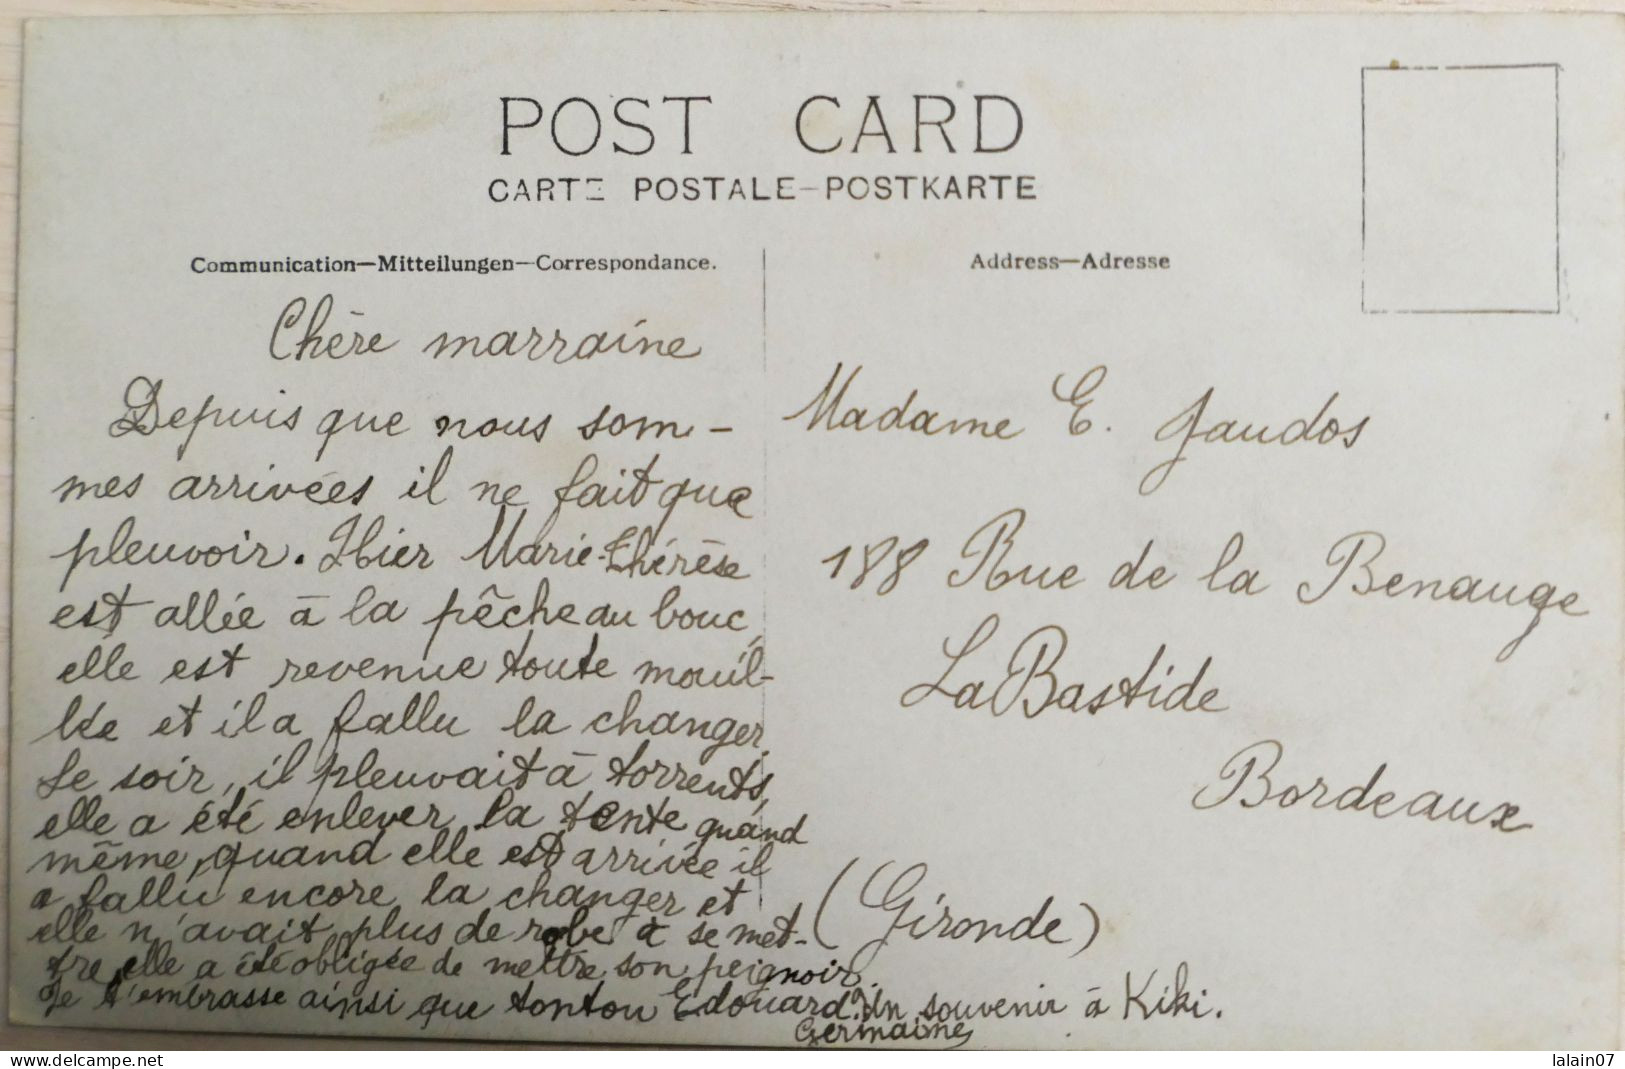 POST CARD
CARTE POSTALE–POSTKARTE
Communication—Mitteilungen—Correspondance.
Address—Adresse
Chère marraine
Depuis que nous som-
mes arrivées il ne fait que
pleuvoir. Hier Marie-Thérèse
est allée à la pêche au bouc,
elle est revenue toute mouil-
lée et il a fallu la changer.
Le soir, il pleuvait à torrents,
elle a été enlever la tente quand
même, quand elle est arrivée il
a fallu encore la changer et
elle n'avait plus de robe à se met-
tre, elle a été obligée de mettre son peignoir.
Je t'embrasse ainsi que tonton Edouard. Un souvenir à Kiki.
Germaine
Madame E. Jaudos
188 Rue de la Benauge
La Bastide
Bordeaux
(Gironde)
www.delcampe.net
lalain07